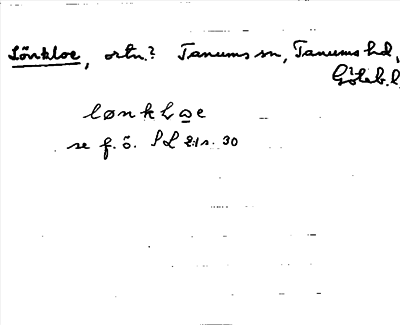 Lönkloe, ortn.? Tanums sn, Tanums hd,
Göteb. l.
lønkloe
se f.ö. SL 21 s. 30